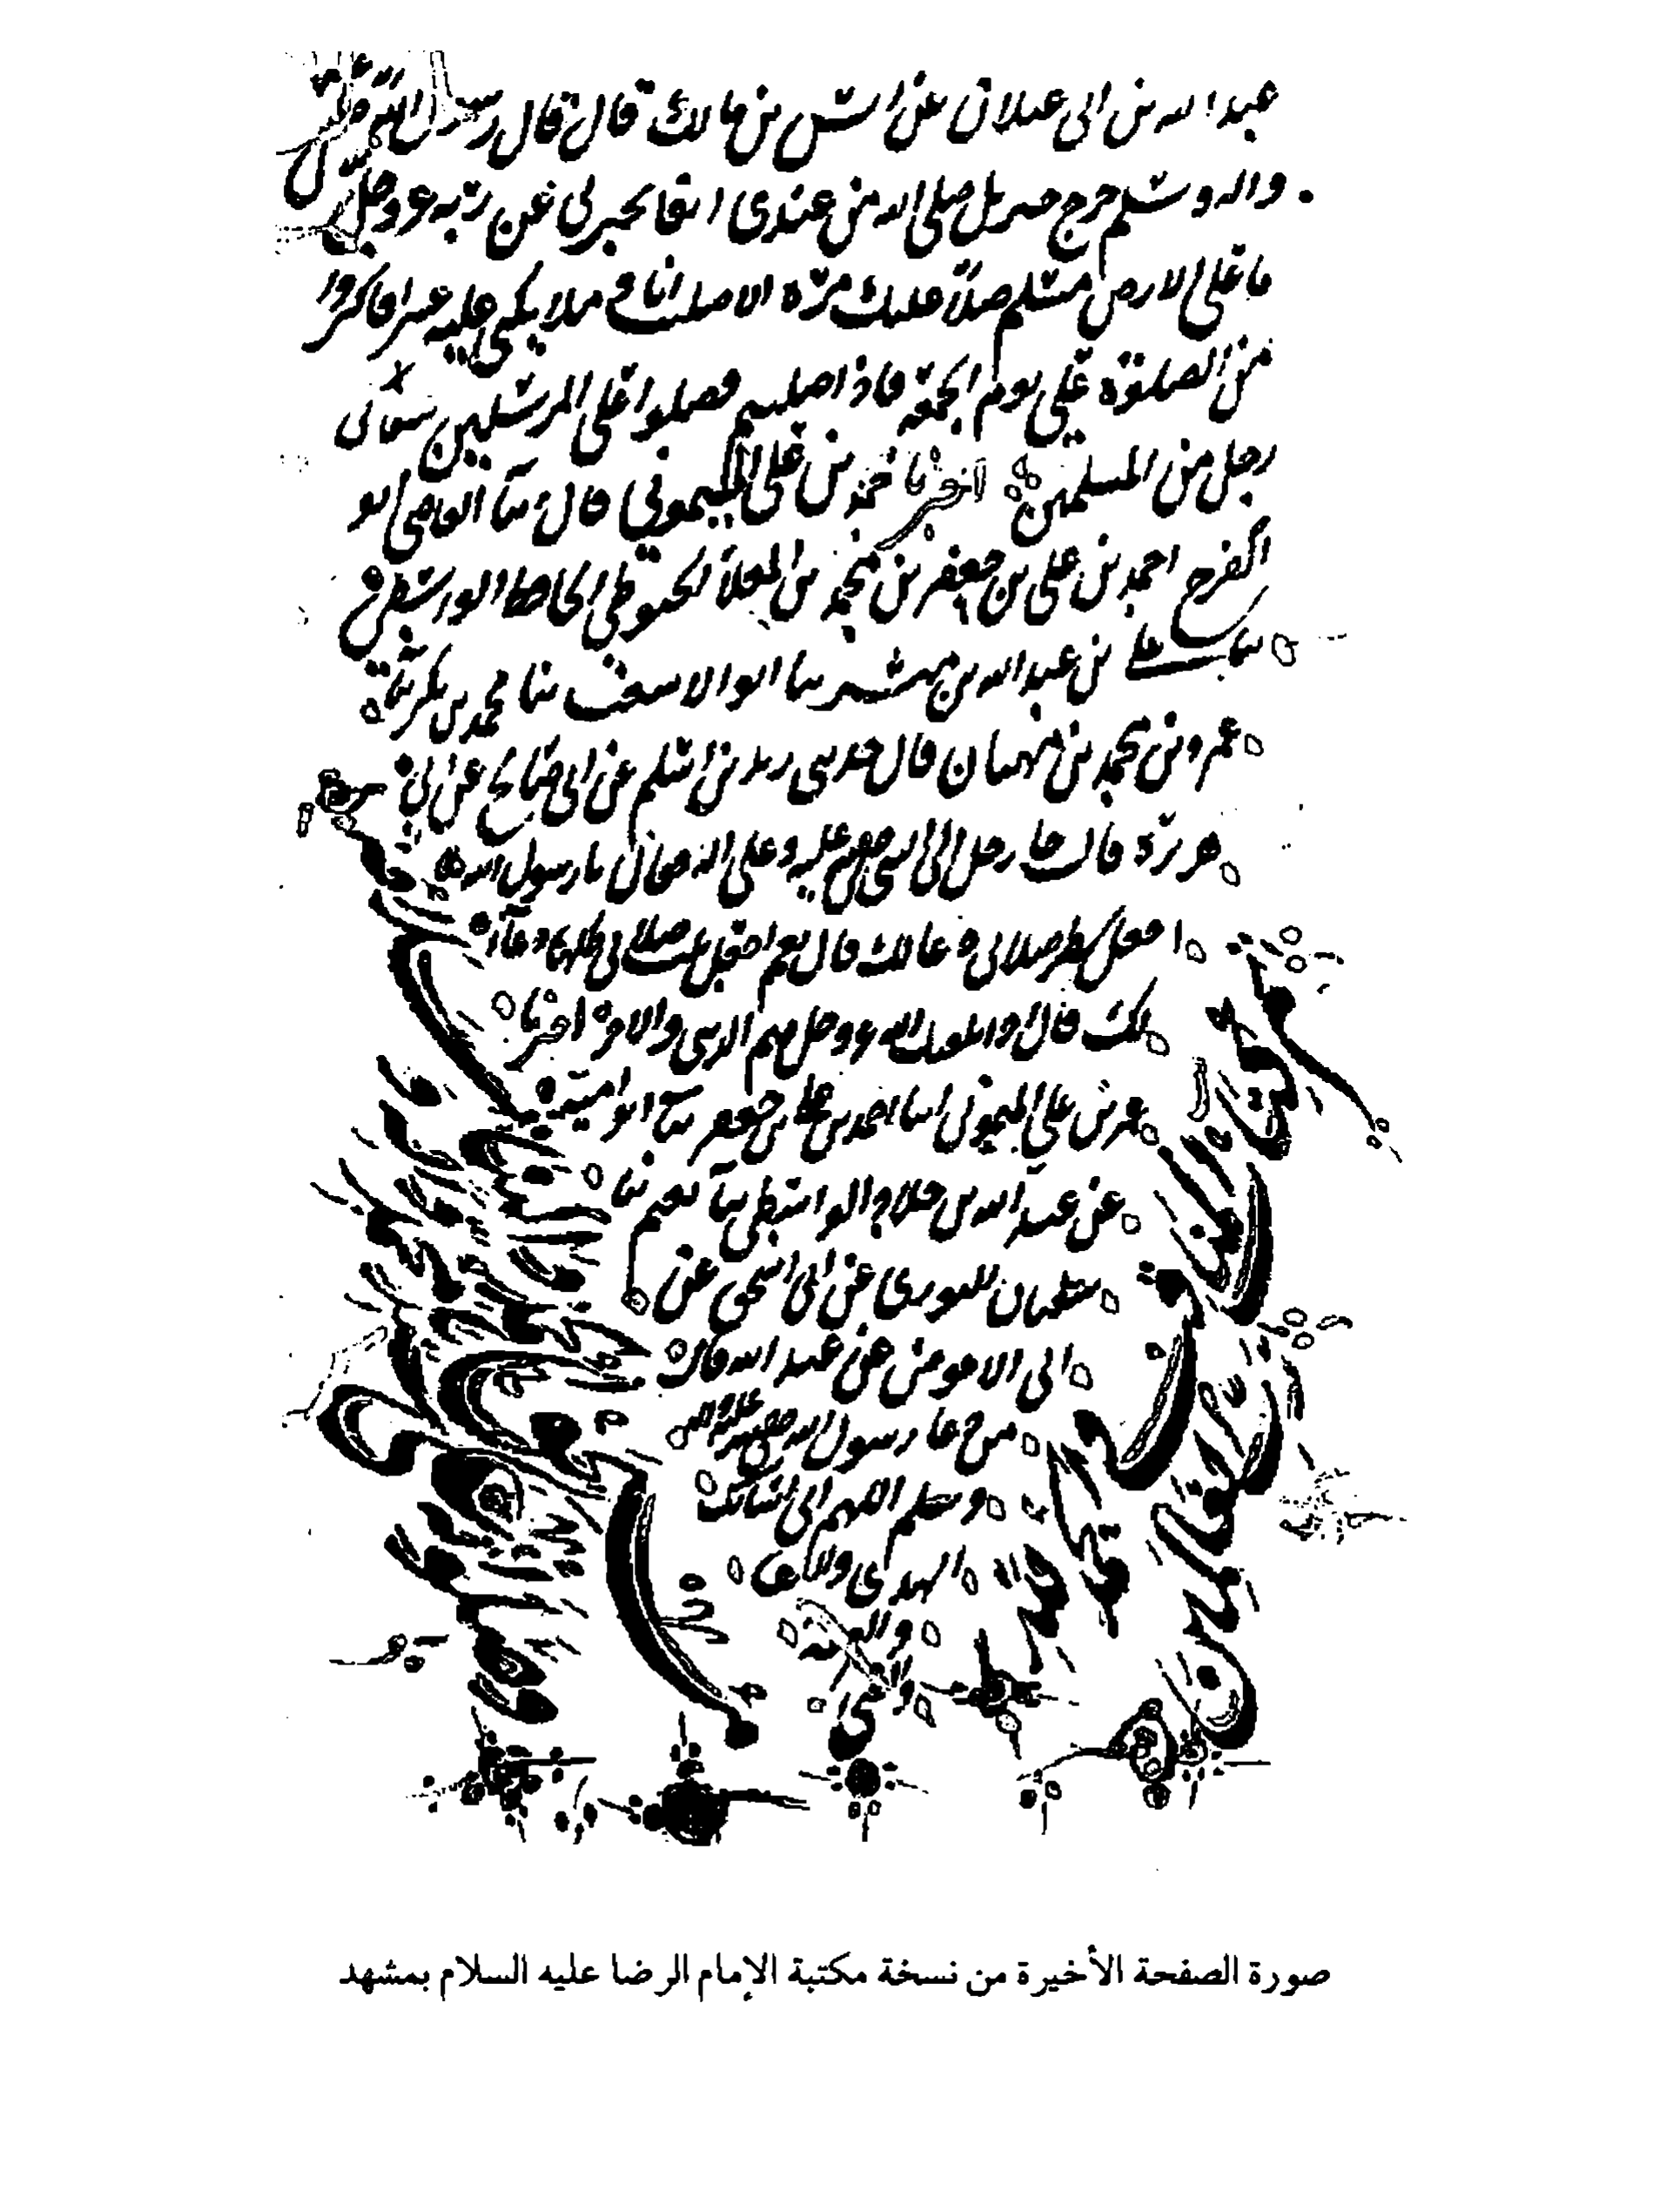 عبد الله بن ابى عن انس بن مالك قال قال رسول الله
واله وسلم خرج من عندى انفا يخبرنى عن ربه عز وجل
ما على الارض مسلم صلا عليك مرة الا صليت انا و ملايكتى عليه عشرا فاكثروا
من الصلوة على يوم الجمعة فاذا صليتم فصلوا على المرسلين
رجل من المسلمين اخبرنا محمد بن على الميمونى قال ثنا القاضى ابو
الفرج احمد بن على بن جعفر بن محمد بن المعلا الحافظ الواسطى
ثنا بن عبد الله بن مبشر ثنا ابو الاشعث ثنا محمد بن بكر ثنا
عمرو بن محمد بن قال حدثنى زيد بن اسلم عن ابى صالح عن ابى
هريرة قال جا رجل الى النبى عليه وعلى اله فقال يا رسول الله
اجعل شطر صلاتى دعا لك قال نعم اجعل صلاتى كلها دعا
لك قال اذا الله عز وجل هم الدنيا والاخرة اخبرنا
بن على الميمونى انا احمد بن على بن جعفر ثنا ابو امية
عن عبد الله بن الواسطى ثنا نعيم ثنا
سفيان الثورى عن ابى اسحق عن
ابى الاحوص عن عبد الله قال
من دعا رسول الله
وسلم اللهم انى اسالك
الهدى والتقى
والعفة
والغنى
صورة الصفحة الأخيرة من نسخة مكتبة الإمام الرضا عليه السلام بمشهد